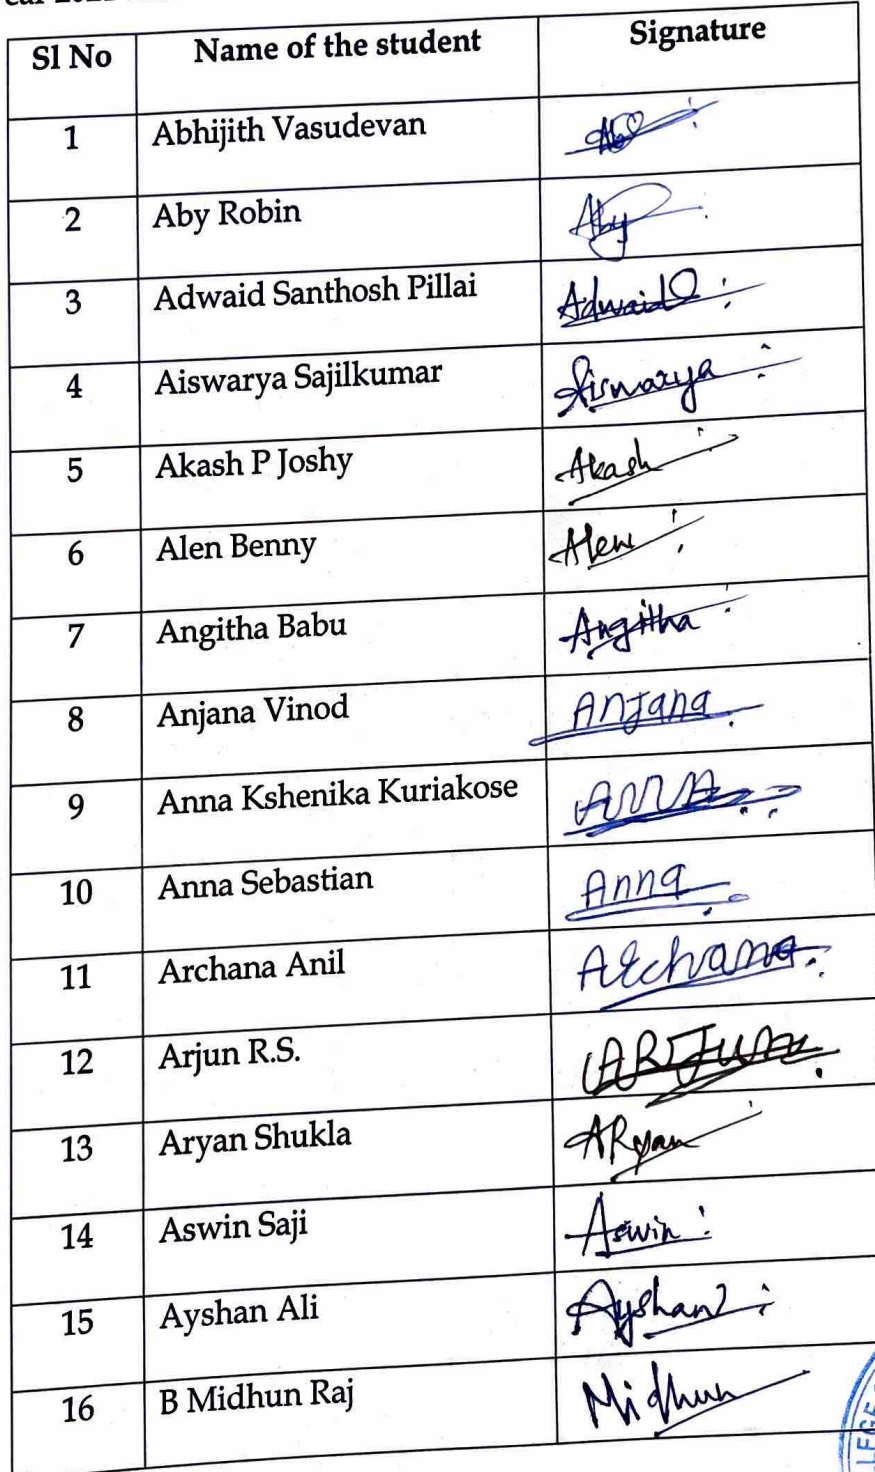 Sl No Name of the student Signature
1 Abhijith Vasudevan
2 Aby Robin Aby
3 Adwaid Santhosh Pillai Adwaid
4 Aiswarya Sajilkumar Aiswarya
5 Akash P Joshy Akash
6 Alen Benny Alen
7 Angitha Babu Angitha
8 Anjana Vinod Anjana
9 Anna Kshenika Kuriakose ANNA
10 Anna Sebastian Anna
11 Archana Anil Archana
12 Arjun R.S. ARJUN
13 Aryan Shukla ARyan
14 Aswin Saji Aswin
15 Ayshan Ali Ayshan
16 B Midhun Raj Midhun